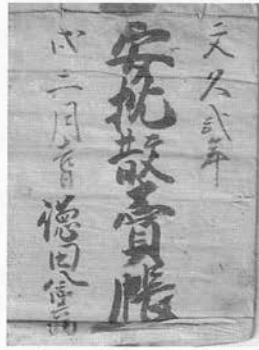 文久弐年
安批散賣帳
戌二月吉日
徳田